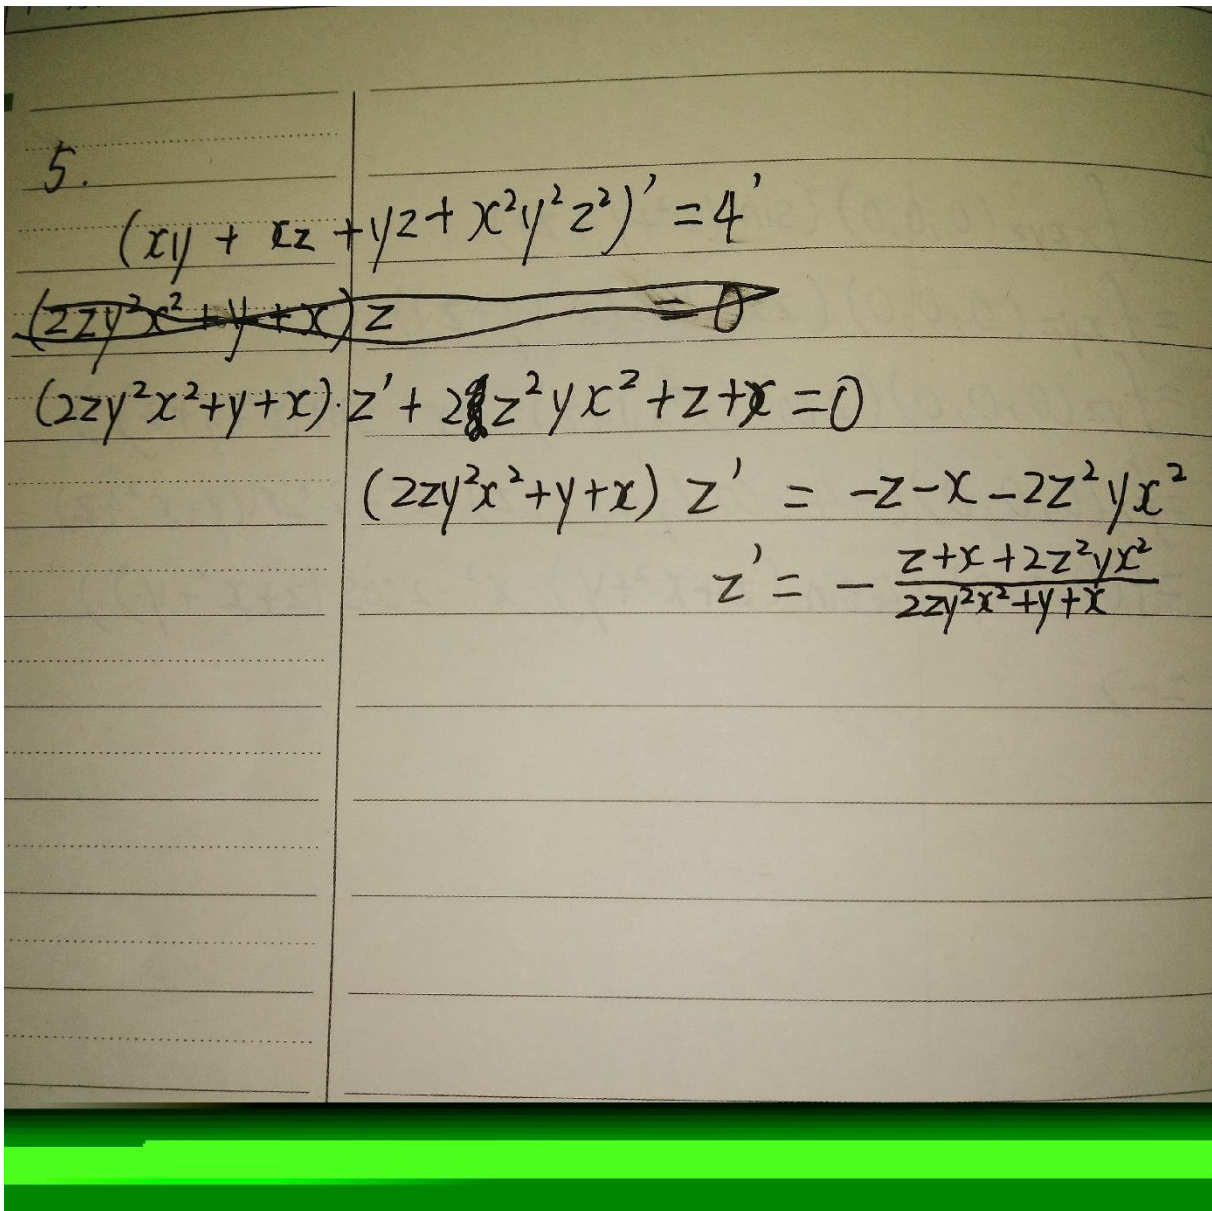 5.
(xy + xz + yz + x²y²z²)' = 4'
(2zy²x² + y + x) z = 0
(2zy²x²+y+x)·z' + 2z²yx²+z+x = 0
(2zy²x²+y+x) z' = -z-x-2z²yx²
z' = - \frac{z+x+2z²yx²}{2zy²x²+y+x}